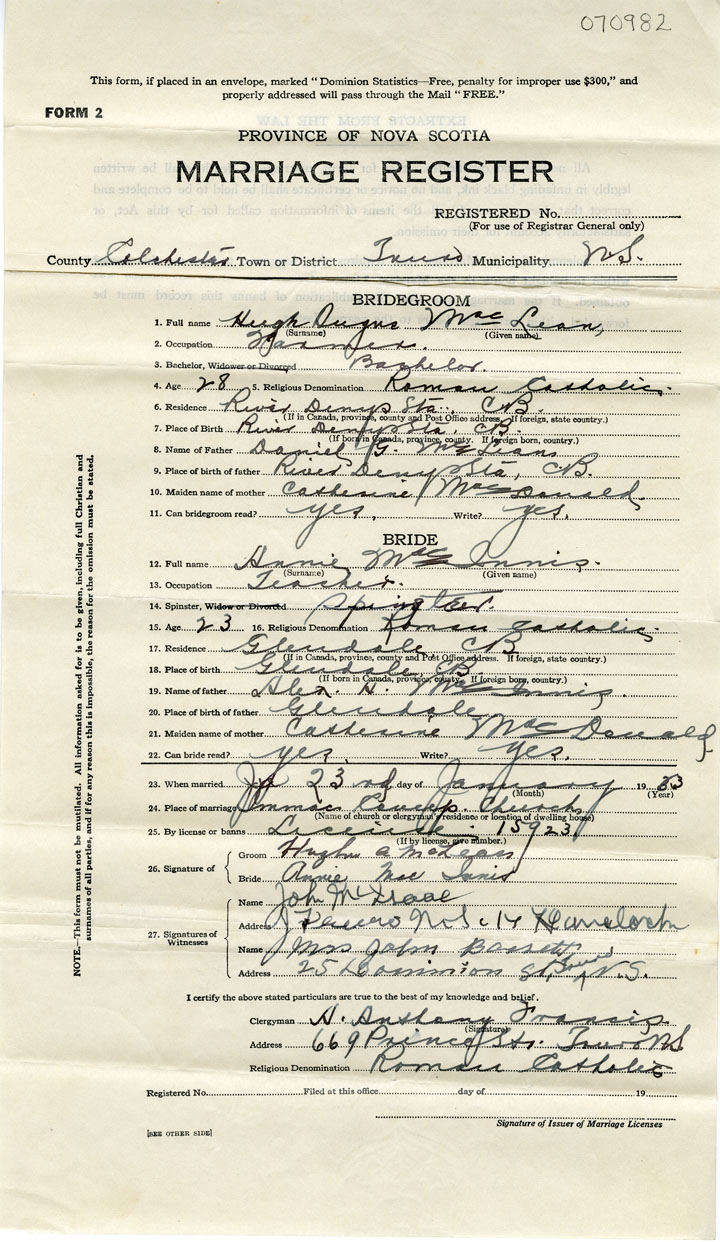 070982
This form, if placed in an envelope, marked "Dominion Statistics—Free, penalty for improper use $300," and
properly addressed will pass through the Mail "FREE."
FORM 2
PROVINCE OF NOVA SCOTIA
MARRIAGE REGISTER
REGISTERED No.
(For use of Registrar General only)
County Colchester Town or District Truro Municipality N.S.
BRIDEGROOM
1. Full name Hugh Angus Mac Lean
(Surname) (Given name)
2. Occupation Farmer.
3. Bachelor, Widower or Divorced Bachelor.
4. Age 28 5. Religious Denomination Roman Catholic.
6. Residence River Denys Sta., C.B.
(If in Canada, province, county and Post Office address. If foreign, state country.)
7. Place of Birth River Denys Sta., C.B.
(If born in Canada, province, county. If foreign born, country.)
8. Name of Father Daniel G. McLean
9. Place of birth of father River Denys Sta, C.B.
10. Maiden name of mother Catherine MacDonald
11. Can bridegroom read? yes, Write? yes.
BRIDE
12. Full name Annie MacInnis.
(Surname) (Given name)
13. Occupation Teacher.
14. Spinster, Widow or Divorced Spinster.
15. Age 23 16. Religious Denomination Roman Catholic.
17. Residence Glendale, C.B.
(If in Canada, province, county and Post Office address. If foreign, state country.)
18. Place of birth Glendale, C.B.
(If born in Canada, province, county. If foreign born, country.)
19. Name of father Alex. H. MacInnis.
20. Place of birth of father Glendale
21. Maiden name of mother Catherine MacDonald
22. Can bride read? yes, Write? yes.
23. When married 23rd day of January 1933
(Month) (Year)
24. Place of marriage Immac. Concep. Church
(Name of church or clergyman's residence or location of dwelling house)
25. By license or banns License: 15923
(If by license, give number.)
26. Signature of
Groom Hugh A McLean
Bride Annie Mac Innis
27. Signatures of Witnesses
Name John McIsaac
Address Truro N.S. 14 Havelock
Name Mrs John Bassett
Address 25 Dominion St. Truro N.S.
I certify the above stated particulars are true to the best of my knowledge and belief.
Clergyman H. Anthony Francis.
(Signature)
Address 669 Prince St. Truro NS
Religious Denomination Roman Catholic
Registered No. Filed at this office day of 19
Signature of Issuer of Marriage Licenses
[SEE OTHER SIDE]
NOTE.—This form must not be mutilated. All information asked for is to be given, including full Christian and
surnames of all parties, and if for any reason this is impossible, the reason for the omission must be stated.